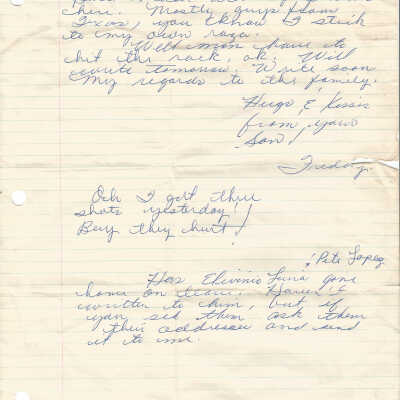 here. Mostly guys from
Texas, you know I stick
to my own raza.
Well mom have to
hit the rack, ok. Will
write tomorrow. Write soon
My regards to the family.
Hugs & Kisses
from your
Son,
Freddy.
Och I got three
shots yesterday!!
Boy they hurt!
! Pete Lopez
Has Eliverio Luna gone
home on leave. Haven't
written to him, but if
you see them ask them
their addresses and send
it to me.